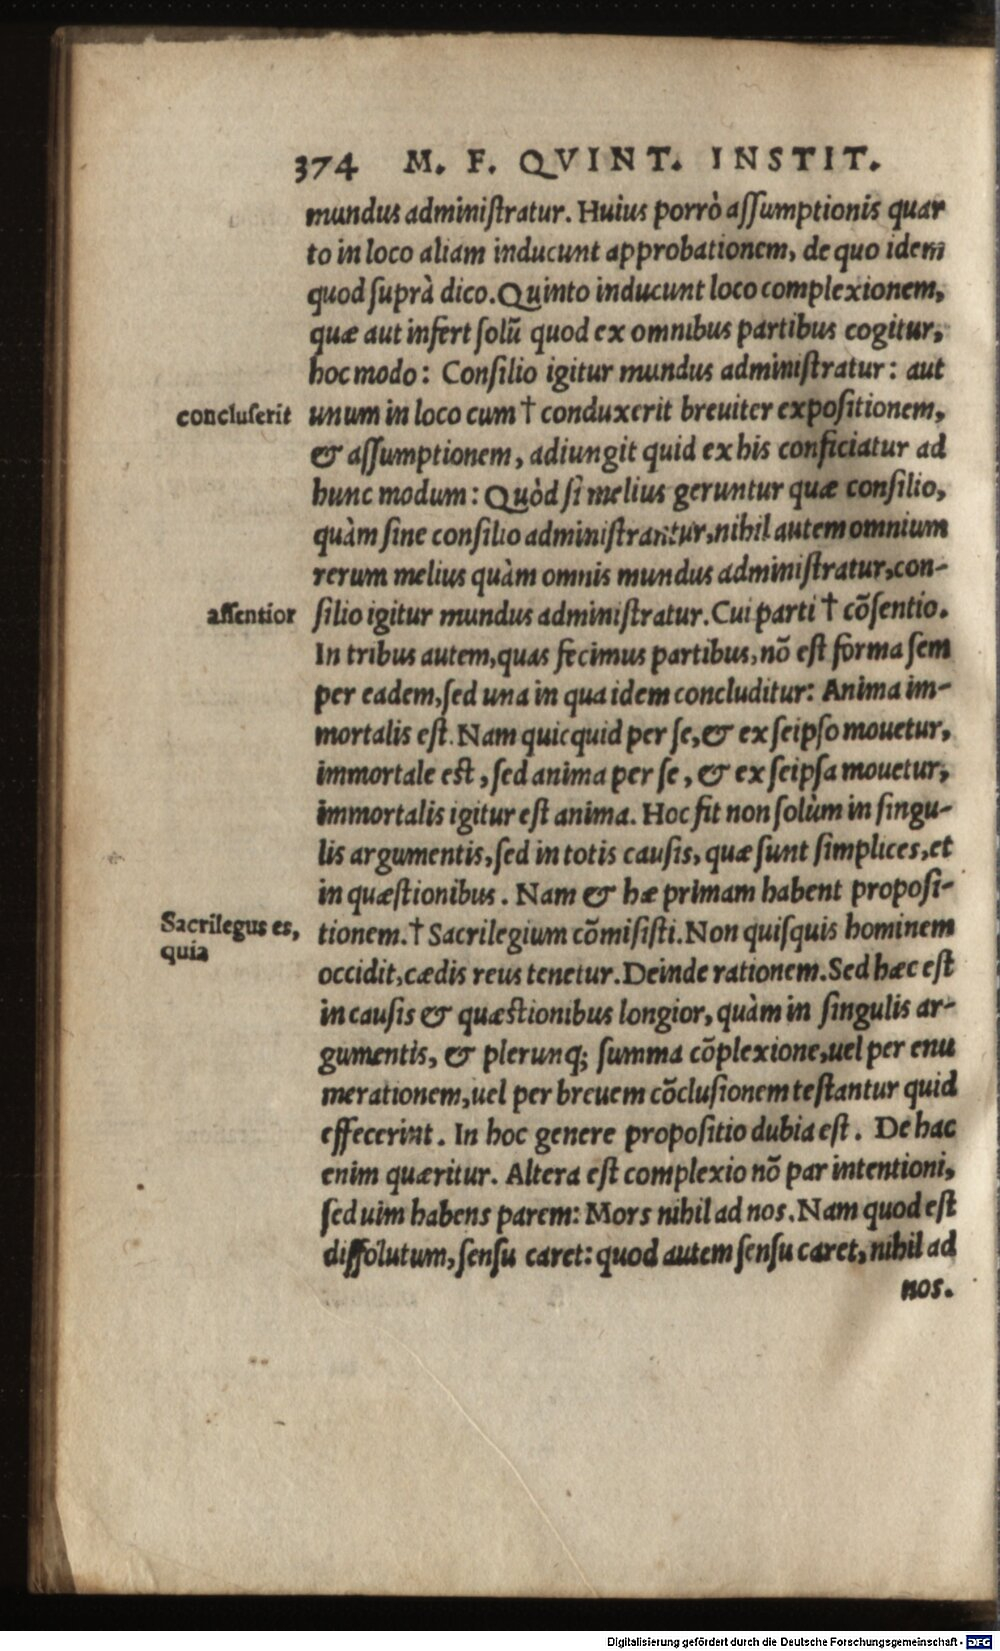 374 M. F. QVINT. INSTIT.
mundus administratur. Huius porrò assumptionis quar
to in loco aliam inducunt approbationem, de quo idem
quod suprà dico. Quinto inducunt loco complexionem,
quæ aut infert solũ quod ex omnibus partibus cogitur,
hoc modo: Consilio igitur mundus administratur: aut
concluserit
unum in loco cum † conduxerit breuiter expositionem,
& assumptionem, adiungit quid ex his conficiatur ad
hunc modum: Quòd si melius geruntur quæ consilio,
quàm sine consilio administrantur, nihil autem omnium
rerum melius quàm omnis mundus administratur, con-
assentior
silio igitur mundus administratur. Cui parti † cõsentio.
In tribus autem, quas fecimus partibus, nõ est forma sem
per eadem, sed una in qua idem concluditur: Anima im-
mortalis est. Nam quicquid per se, & ex seipso mouetur,
immortale est, sed anima per se, & ex seipsa mouetur,
immortalis igitur est anima. Hoc fit non solùm in singu-
lis argumentis, sed in totis causis, quæ sunt simplices, et
in quæstionibus. Nam & hæ primam habent proposi-
Sacrilegus es,
quia
tionem. † Sacrilegium cõmisisti. Non quisquis hominem
occidit, cædis reus tenetur. Deinde rationem. Sed hæc est
in causis & quæstionibus longior, quàm in singulis ar-
gumentis, & plerunq; summa cõplexione, uel per enu
merationem, uel per breuem cõclusionem testantur quid
effecerint. In hoc genere propositio dubia est. De hac
enim quæritur. Altera est complexio nõ par intentioni,
sed uim habens parem: Mors nihil ad nos. Nam quod est
dissolutum, sensu caret: quod autem sensu caret, nihil ad
nos.
Digitalisierung gefördert durch die Deutsche Forschungsgemeinschaft - DFG